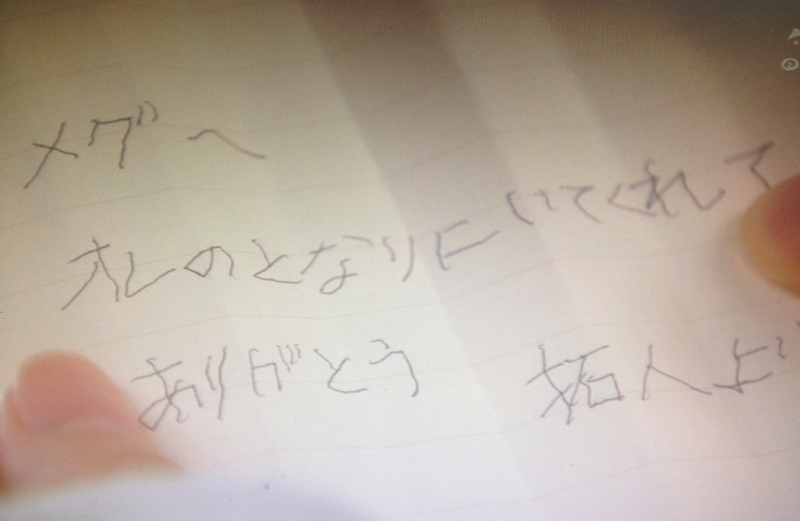 メグへ
オレのとなりにいてくれて
ありがとう 拓人より